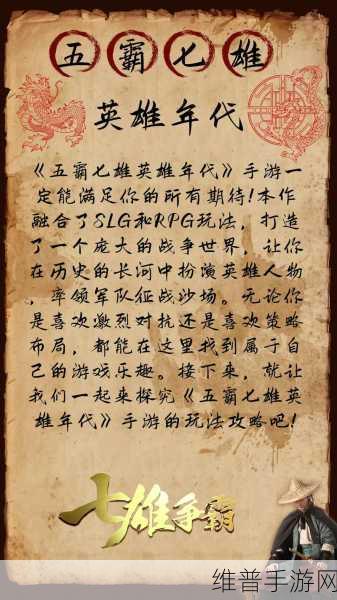 五霸七雄
英雄年代
《五霸七雄英雄年代》手游一
定能满足你的所有期待!本作
融合了SLG和RPG玩法，打造
了一个庞大的战争世界，让你
在历史的长河中扮演英雄人物
，率领军队征战沙场。无论你
是喜欢激烈对抗还是喜欢策略
布局，都能在这里找到属于自
己的游戏乐趣。接下来，就让
我们一起来探究《五霸七雄英
雄年代》手游的玩法攻略吧!
七雄争霸
维普手游网